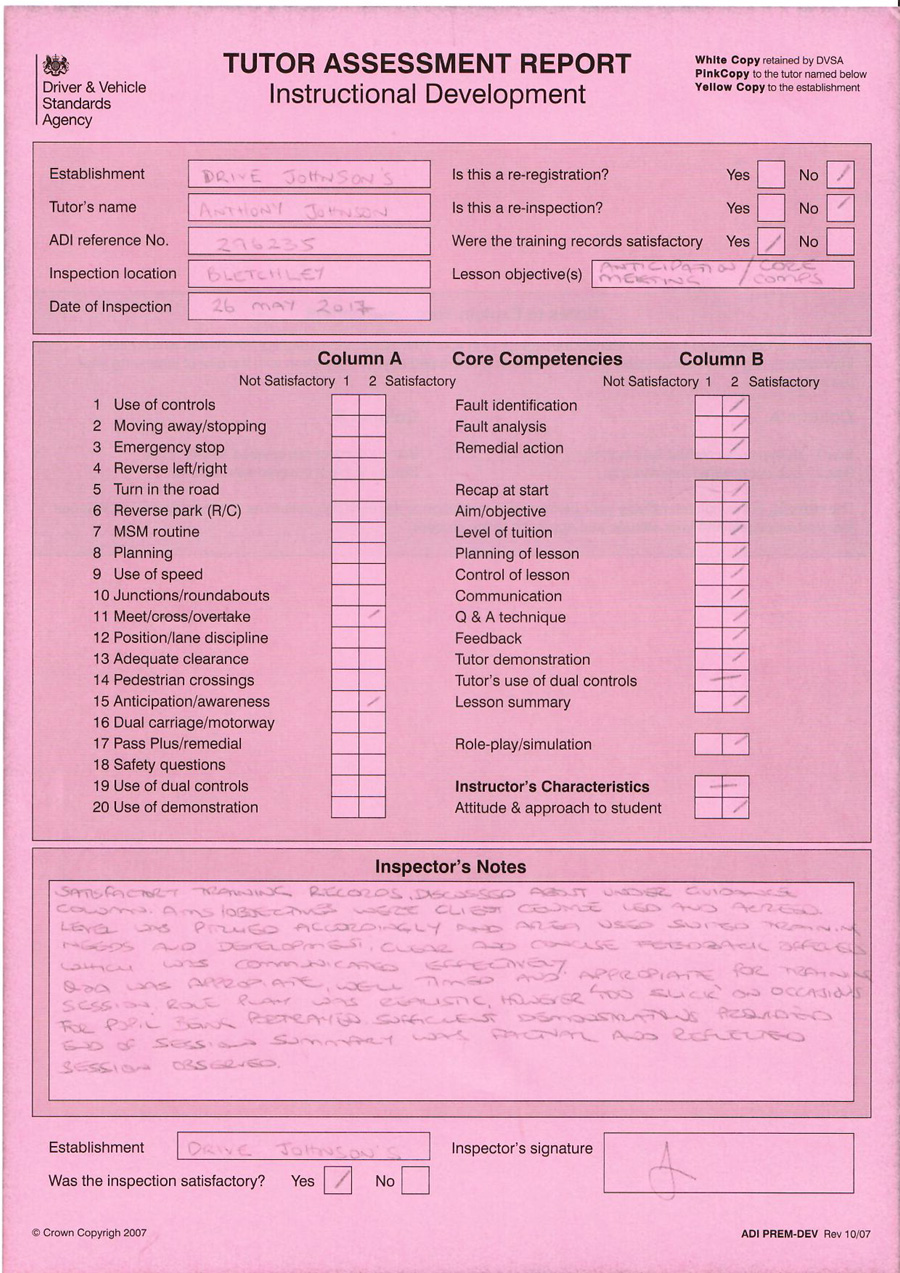 TUTOR ASSESSMENT REPORT
Instructional Development
Driver & Vehicle
Standards
Agency
White Copy retained by DVSA
PinkCopy to the tutor named below
Yellow Copy to the establishment
Establishment DRIVE JOHNSON'S
Is this a re-registration? Yes No /
Tutor's name ANTHONY JOHNSON
Is this a re-inspection? Yes No /
ADI reference No. 296235
Were the training records satisfactory Yes / No
Inspection location BLETCHLEY
Lesson objective(s) ANTICIPATION / CORE
MEETING / COMPS
Date of Inspection 26 MAY 2017
Column A Core Competencies Column B
Not Satisfactory 1 2 Satisfactory Not Satisfactory 1 2 Satisfactory
1 Use of controls Fault identification /
2 Moving away/stopping Fault analysis /
3 Emergency stop Remedial action /
4 Reverse left/right
5 Turn in the road Recap at start /
6 Reverse park (R/C) Aim/objective /
7 MSM routine Level of tuition /
8 Planning Planning of lesson /
9 Use of speed Control of lesson /
10 Junctions/roundabouts Communication /
11 Meet/cross/overtake / Q & A technique /
12 Position/lane discipline Feedback /
13 Adequate clearance Tutor demonstration /
14 Pedestrian crossings Tutor's use of dual controls —
15 Anticipation/awareness / Lesson summary /
16 Dual carriage/motorway
17 Pass Plus/remedial Role-play/simulation /
18 Safety questions
19 Use of dual controls Instructor's Characteristics —
20 Use of demonstration Attitude & approach to student /
Inspector's Notes
SATISFACTORY TRAINING RECORDS, DISCUSSED ABOUT UNDER GUIDANCE
COLUMN. AIMS/OBJECTIVES WERE CLIENT CENTRE LED AND AGREED
LEVEL WAS PITCHED ACCORDINGLY AND AREA USED SUITED TRAINING
NEEDS AND DEVELOPMENT, CLEAR AND CONCISE FEEDBACK OFFERED
WHICH WAS COMMUNICATED EFFECTIVELY.
Q&A WAS APPROPIATE, WELL TIMED AND APPROPIATE FOR TRAINING
SESSION. ROLE PLAY WAS REALISTIC, HOWEVER 'TOO SLICK' ON OCCASIONS
FOR PUPIL BEING PORTRAYED. SUFFICIENT DEMONSTRATIONS PROVIDED
END OF SESSION SUMMARY WAS FACTUAL AND REFLECTED
SESSION OBSERVED.
Establishment DRIVE JOHNSON'S
Inspector's signature
Was the inspection satisfactory? Yes / No
© Crown Copyrigh 2007
ADI PREM-DEV Rev 10/07